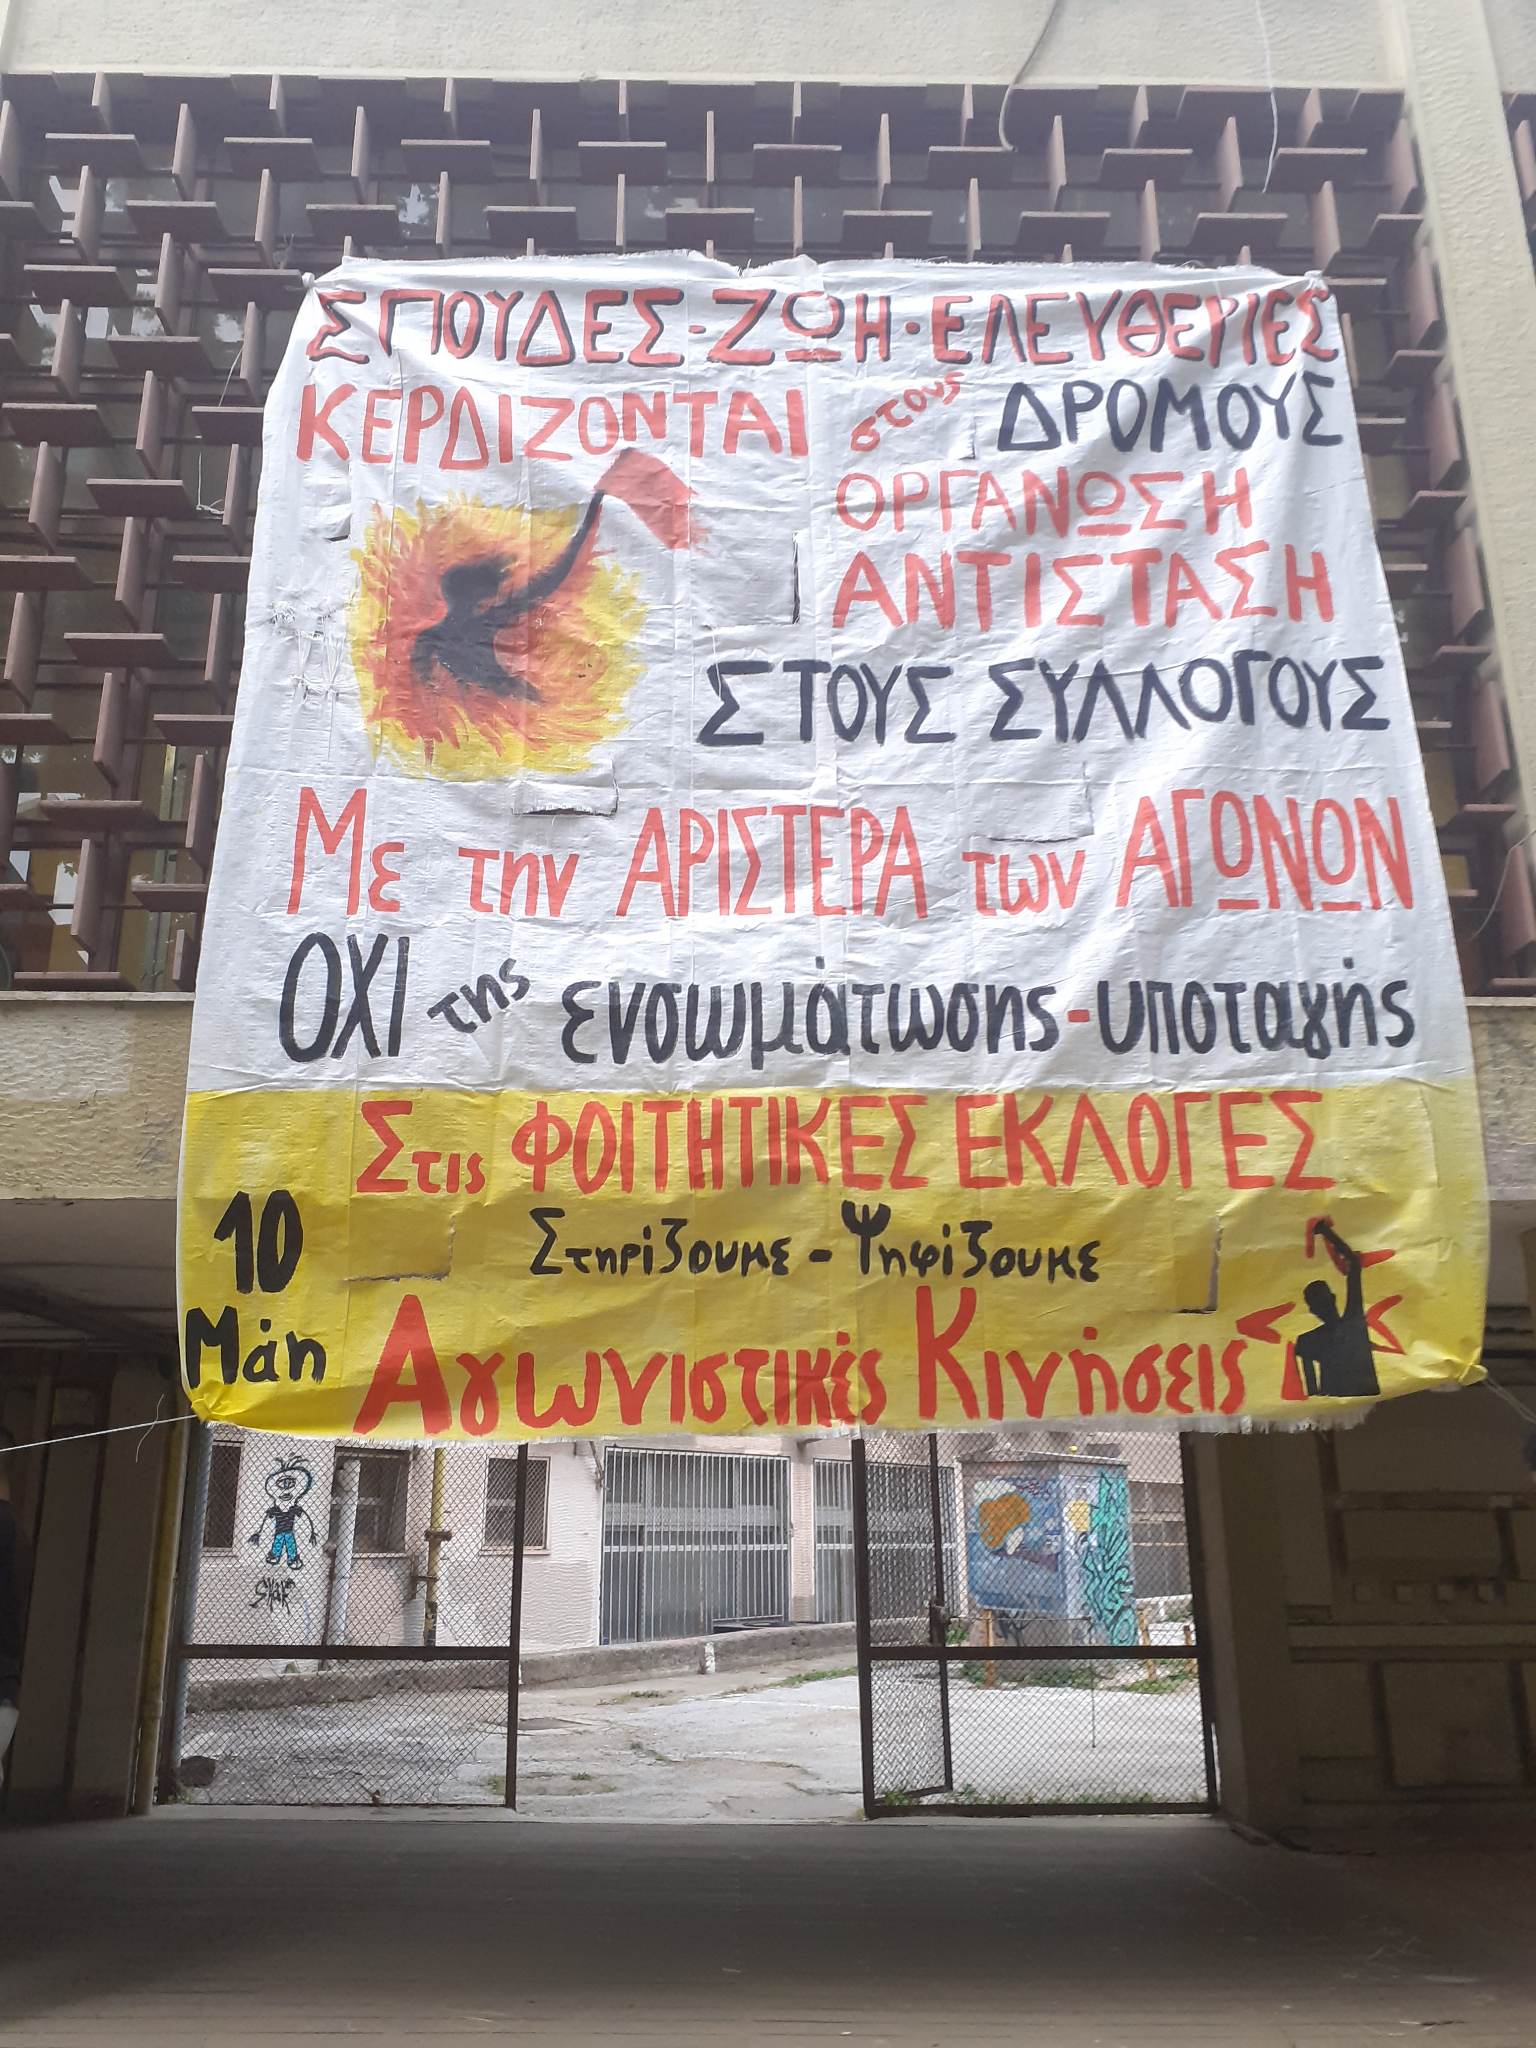 ΣΠΟΥΔΕΣ-ΖΩΗ·ΕΛΕΥΘΕΡΙΕΣ
ΚΕΡΔΙΖΟΝΤΑΙ στους ΔΡΟΜΟΥΣ
ΟΡΓΑΝΩΣΗ
ΑΝΤΙΣΤΑΣΗ
ΣΤΟΥΣ ΣΥΛΛΟΓΟΥΣ
Με την ΑΡΙΣΤΕΡΑ των ΑΓΩΝΩΝ
ΟΧΙ της ενσωμάτωσης-υποταγής
Στις ΦΟΙΤΗΤΙΚΕΣ ΕΚΛΟΓΕΣ
10
Μάη
Στηρίζουμε-Ψηφίζουμε
Αγωνιστικές Κινήσεις